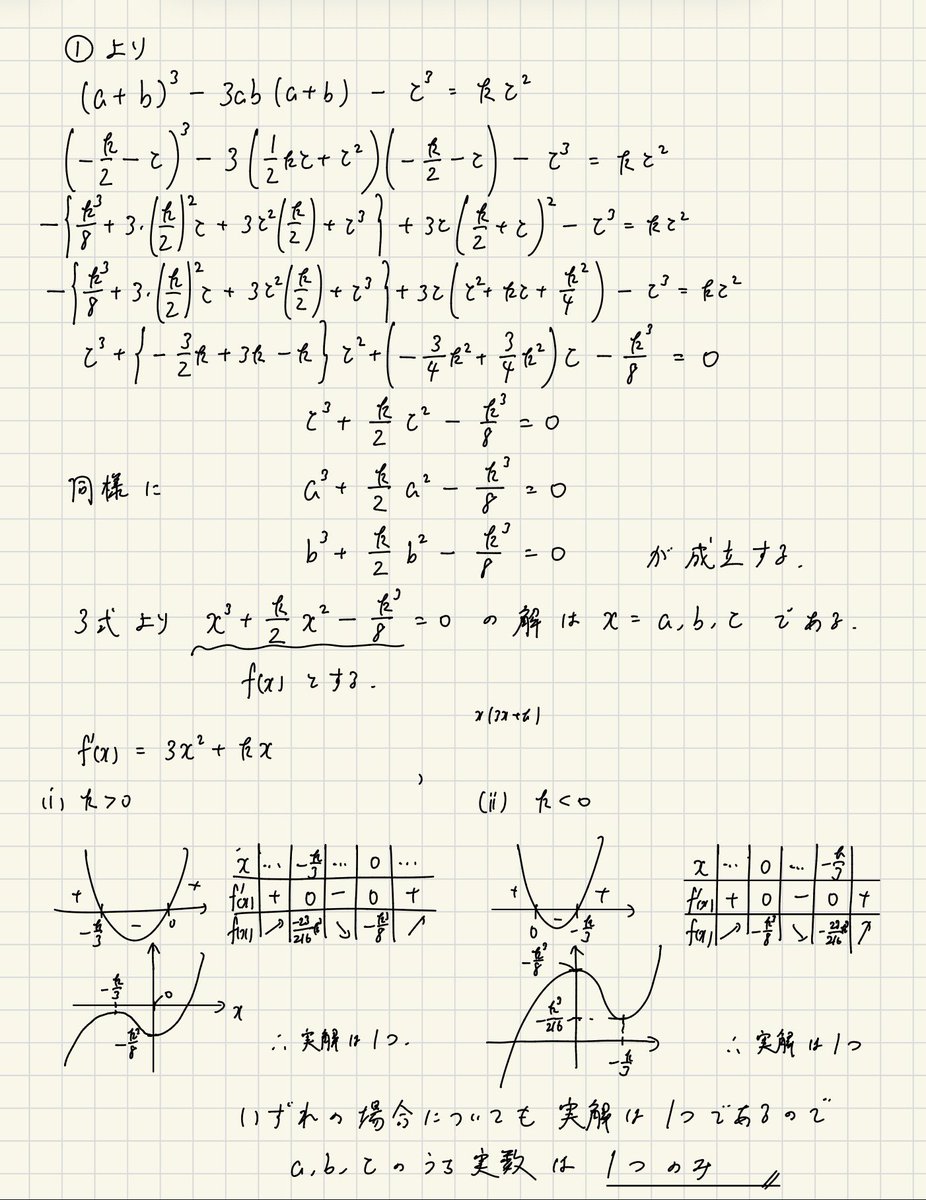 ① より
(a+b)³ - 3ab(a+b) - c³ = kc²
(-k/2 - c)³ - 3(1/2 kc + c²)(-k/2 - c) - c³ = kc²
-{k³/8 + 3・(k/2)²c + 3c²(k/2) + c³} + 3c(k/2 + c)² - c³ = kc²
-{k³/8 + 3・(k/2)²c + 3c²(k/2) + c³} + 3c(c² + kc + k²/4) - c³ = kc²
c³ + {-3/2 k + 3k - k}c² + (-3/4 k² + 3/4 k²)c - k³/8 = 0
c³ + k/2 c² - k³/8 = 0
同様に a³ + k/2 a² - k³/8 = 0
b³ + k/2 b² - k³/8 = 0 が成立する.
3式より x³ + k/2 x² - k³/8 = 0 の解は x = a, b, c である.
f(x) とする.
x(3x+k)
f'(x) = 3x² + kx
(i) k>0
+ - +
-k/3 0
x … -k/3 … 0 …
f'(x) + 0 - 0 +
f(x) ↗ -23/216 k³ ↘ -k³/8 ↗
-k/3 0 x
-k³/8
∴ 実解は1つ.
(ii) k<0
+ - +
0 -k/3
x … 0 … -k/3
f'(x) + 0 - 0 +
f(x) ↗ -k³/8 ↘ -23/216 k³ ↗
-k³/8
-k³/216
-k/3
∴ 実解は1つ
いずれの場合についても 実解は1つであるので
a, b, c のうち実数は 1つのみ